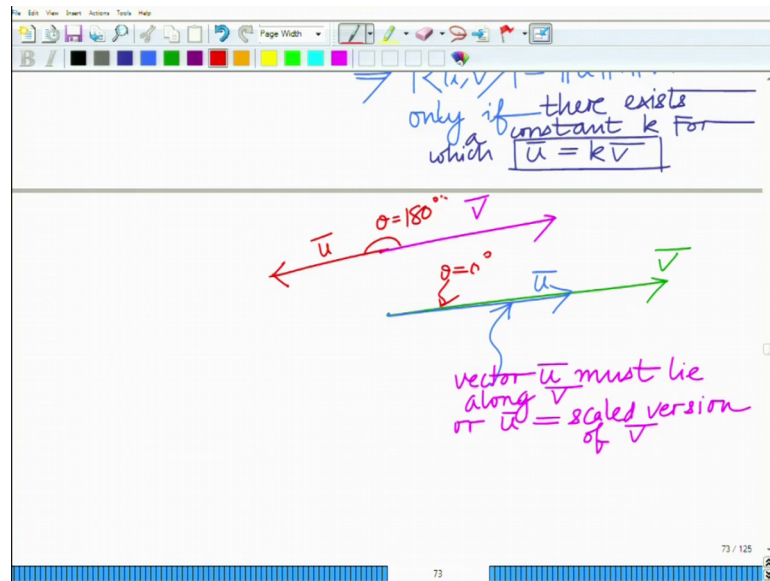 File Edit View Insert Actions Tools Help
Page Width
B I
⇒ |<u, v>| = ||u||
only if there exists
a constant k for
which u̅ = k v̅
θ=180° v̅
u̅
θ=0° u̅ v̅
vector u̅ must lie
along v̅
or u̅ = scaled version
of v̅
73 / 125
73